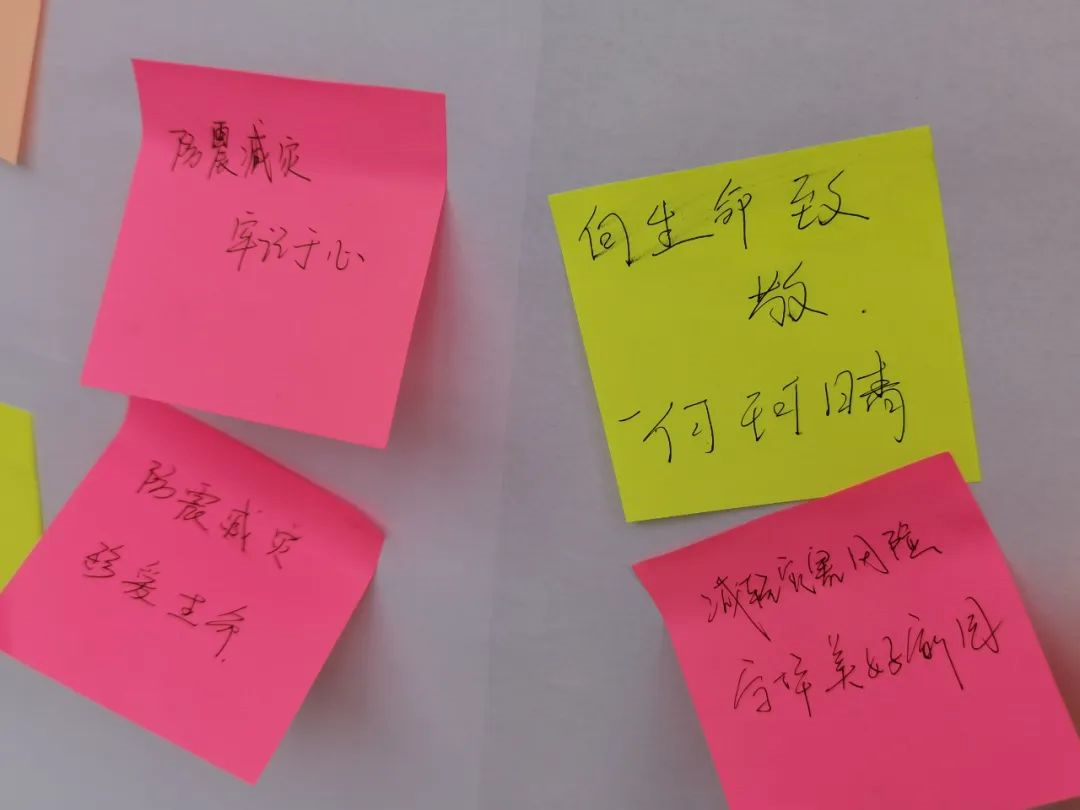 防震减灾
牢记于心
防震减灾
珍爱生命.
向生命致
敬.
—何珂晴
减轻灾害风险
守护美好家园